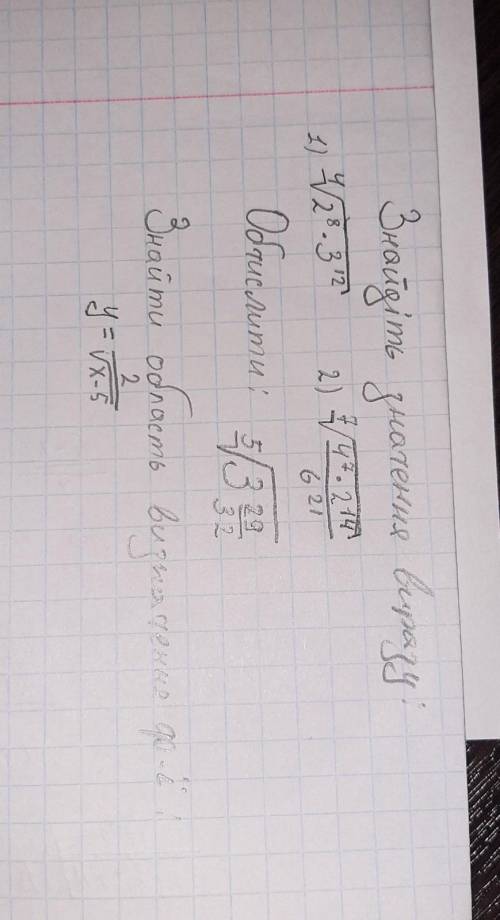 Знайдіть значення виразу:
1) ⁴√(2⁸·3¹²) 2) ⁷√(4⁷·2¹⁴/6²¹)
Обчислити: ⁵√(3 29/32)
Знайти область визначення ф-ї:
y = 2/√(x-5)